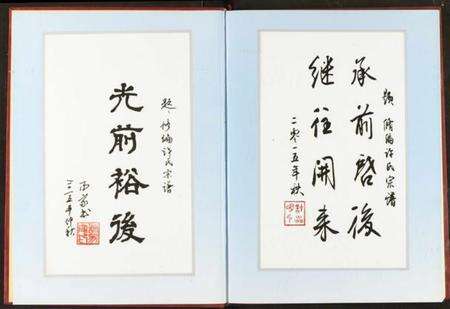 题修编许氏宗谱
光前裕後
二〇一五年仲秋
题修编许氏宗谱
承前啓後
继往開来
二零一五年秋